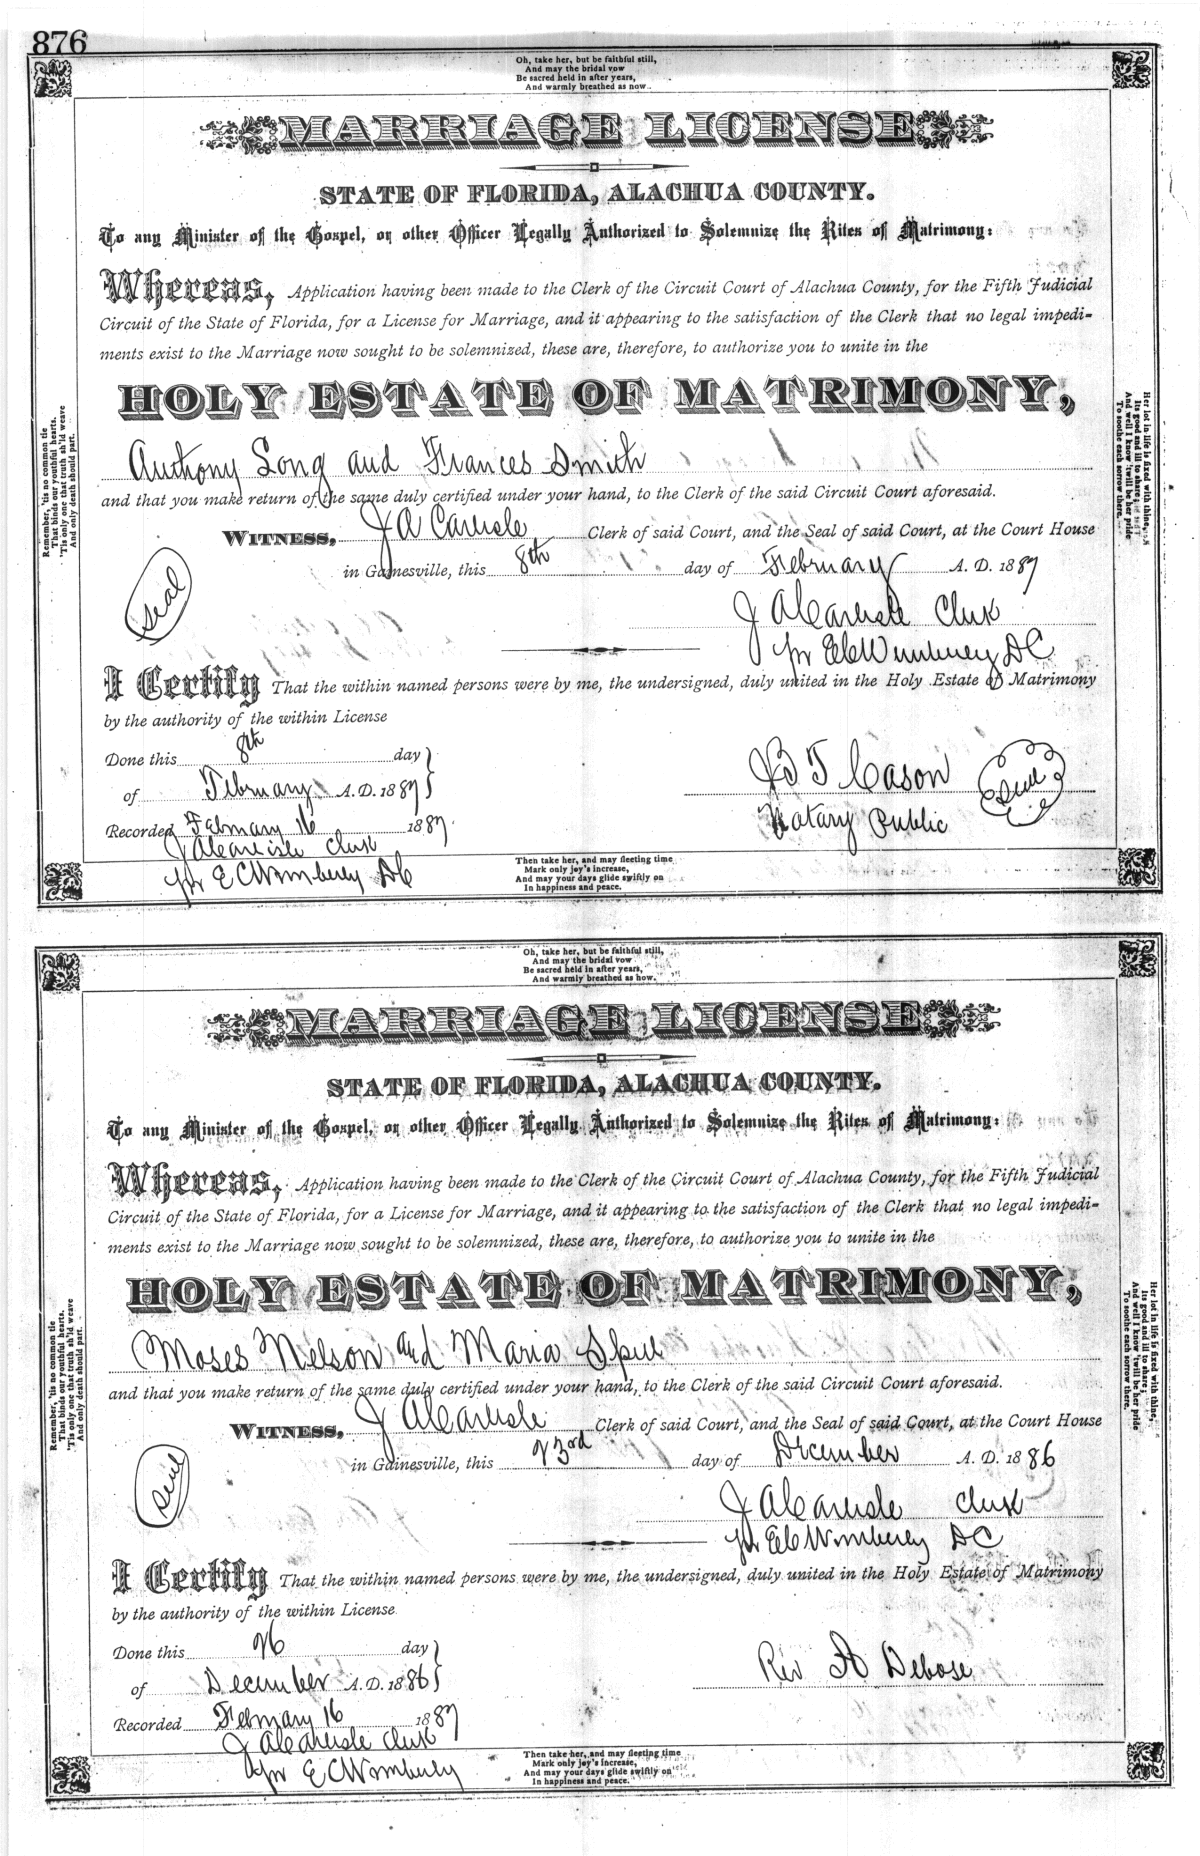 876
Oh, take her, but be faithful still,
And may the bridal vow
Be sacred held in after years,
And warmly breathed as now.
MARRIAGE LICENSE
STATE OF FLORIDA, ALACHUA COUNTY.
To any Minister of the Gospel, or other Officer Legally Authorized to Solemnize the Rites of Matrimony:
Whereas, Application having been made to the Clerk of the Circuit Court of Alachua County, for the Fifth Judicial
Circuit of the State of Florida, for a License for Marriage, and it appearing to the satisfaction of the Clerk that no legal impedi-
ments exist to the Marriage now sought to be solemnized, these are, therefore, to authorize you to unite in the
HOLY ESTATE OF MATRIMONY,
Anthony Long and Frances Smith
and that you make return of the same duly certified under your hand, to the Clerk of the said Circuit Court aforesaid.
WITNESS, J A Carlisle Clerk of said Court, and the Seal of said Court, at the Court House
in Gainesville, this 8th day of February A. D. 1887
Seal
J A Carlisle Clerk
pr E C Wimberly DC
I Certify That the within named persons were by me, the undersigned, duly united in the Holy Estate of Matrimony
by the authority of the within License
Done this 8th day
of February A. D. 1887
J B T Cason
Seal
Notary Public
Recorded February 16 1887
J A Carlisle Clerk
pr E C Wimberly DC
Remember, 'tis no common tie
That binds our youthful hearts.
'Tis only one that truth sh'ld weave
And only death should part.
Her lot in life is fixed with thine,
Its good and ill to share;
And well I know 'twill be her pride
To soothe each sorrow there.
Then take her, and may fleeting time
Mark only joy's increase,
And may your days glide swiftly on
In happiness and peace.
Oh, take her, but be faithful still,
And may the bridal vow
Be sacred held in after years,
And warmly breathed as now.
MARRIAGE LICENSE
STATE OF FLORIDA, ALACHUA COUNTY.
To any Minister of the Gospel, or other Officer Legally Authorized to Solemnize the Rites of Matrimony:
Whereas, Application having been made to the Clerk of the Circuit Court of Alachua County, for the Fifth Judicial
Circuit of the State of Florida, for a License for Marriage, and it appearing to the satisfaction of the Clerk that no legal impedi-
ments exist to the Marriage now sought to be solemnized, these are, therefore, to authorize you to unite in the
HOLY ESTATE OF MATRIMONY,
Moses Nelson and Maria
and that you make return of the same duly certified under your hand, to the Clerk of the said Circuit Court aforesaid.
WITNESS, J A Carlisle Clerk of said Court, and the Seal of said Court, at the Court House
in Gainesville, this 23rd day of December A. D. 1886
Seal
J A Carlisle Clerk
pr E C Wimberly DC
I Certify That the within named persons were by me, the undersigned, duly united in the Holy Estate of Matrimony
by the authority of the within License
Done this 26 day
of December A. D. 1886
Rev A Debose
Recorded February 16 1887
J A Carlisle Clerk
pr E C Wimberly
Remember, 'tis no common tie
That binds our youthful hearts.
'Tis only one that truth sh'ld weave
And only death should part.
Her lot in life is fixed with thine,
Its good and ill to share;
And well I know 'twill be her pride
To soothe each sorrow there.
Then take her, and may fleeting time
Mark only joy's increase,
And may your days glide swiftly on
In happiness and peace.